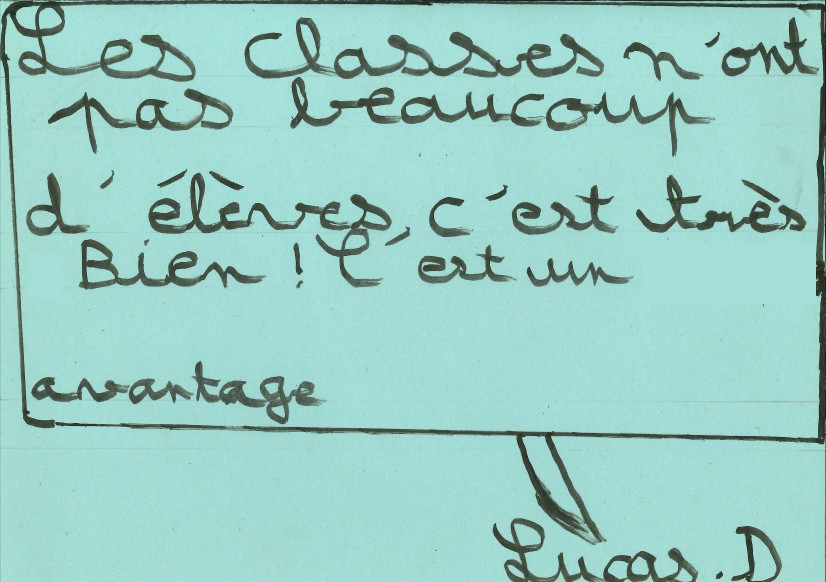 Les classes n'ont
pas beaucoup
d'élèves, c'est très
Bien ! C'est un
avantage
Lucas. D